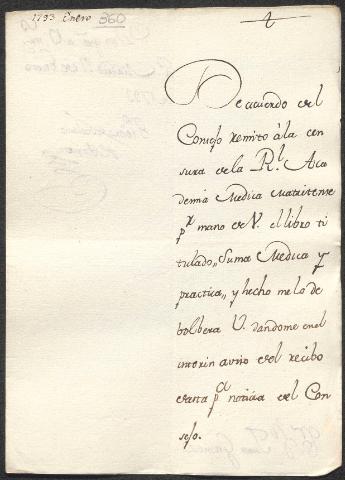 1793 Enero 560
De acuerdo del
Consejo remito à la cen
sura de la Rl. Aca
demia Medica Matritense
pr. mano de V. el libro ti
tulado,, Suma Medica y
practica,, y hecho me lo de
bolbera V. dandome en el
interin aviso del recibo
de esta pa. noticia del Con
sejo.